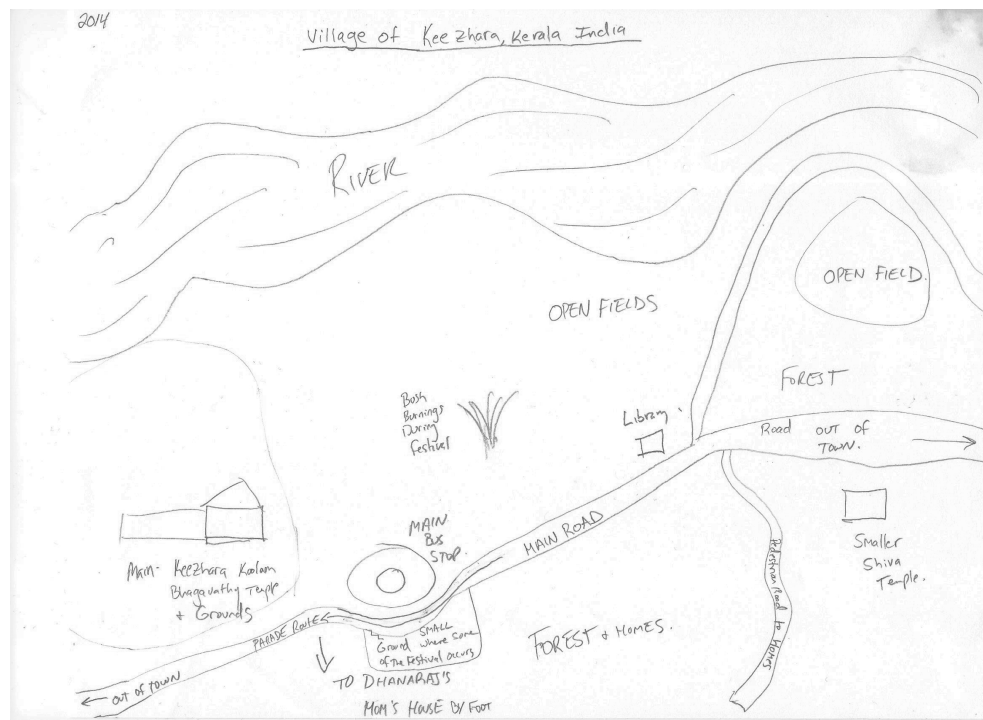 2014
Village of Keezhara, Kerala India
RIVER
OPEN FIELD.
OPEN FIELDS
FOREST
Bush
Burnings
During
Festival
Library
Road OUT OF
TOWN.
MAIN
BUS
STOP.
MAIN ROAD
Smaller
Shiva
Temple.
Pedestrian Road to Homes
Main- Keezhara Koolom
Bhagavathy Temple
+ Grounds
PARADE ROUTE
SMALL
Ground where some
of the Festival occurs
FOREST & HOMES.
OUT OF TOWN
TO DHANARAJ'S
MOM'S HOUSE BY FOOT